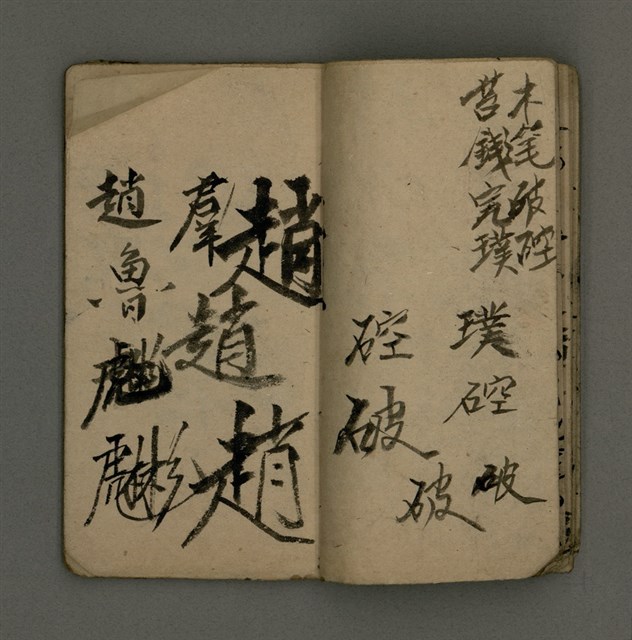 木笔破硿
苔錢完璞
璞硿破
硿破破
趙趙趙
羣
趙魯彪彬